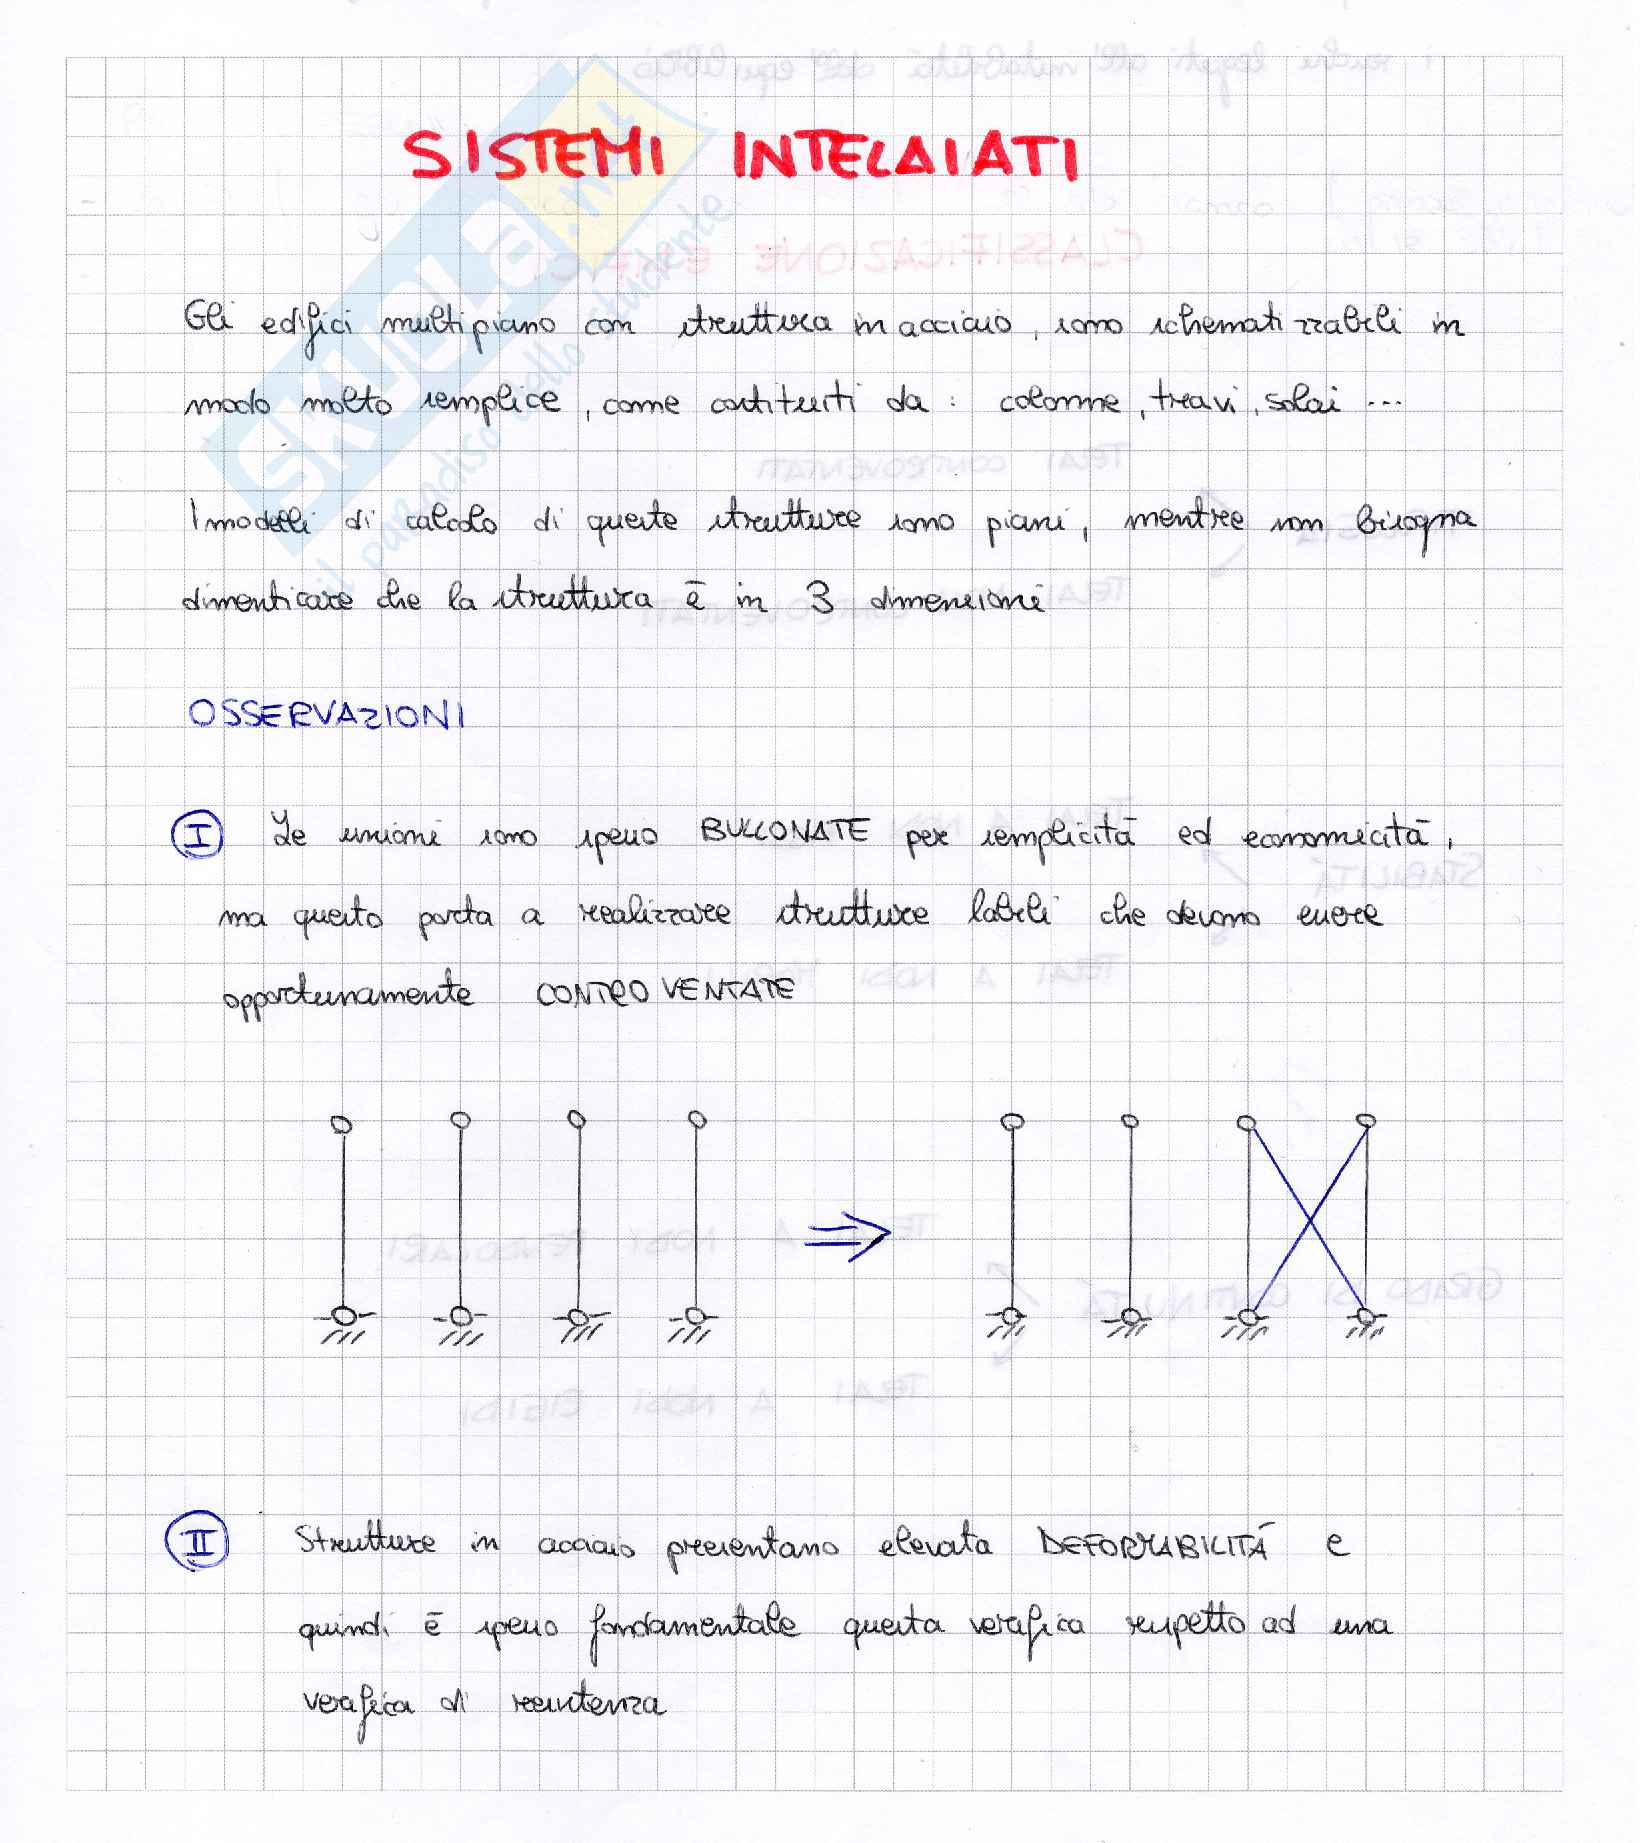 SISTEMI INTELAIATI
Gli edifici multipiano con struttura in acciaio, sono schematizzabili in
modo molto semplice, come costituiti da: colonne, travi, solai ...
I modelli di calcolo di queste strutture sono piani, mentre non bisogna
dimenticare che la struttura è in 3 dimensioni
OSSERVAZIONI
I Le unioni sono spesso BULLONATE per semplicità ed economicità,
ma questo porta a realizzare strutture labili che devono essere
opportunamente CONTROVENTATE
II Strutture in acciaio presentano elevata DEFORMABILITÁ e
quindi è spesso fondamentale questa verifica rispetto ad una
verifica di resistenza
SKUOLA.net
il paradiso dello studente